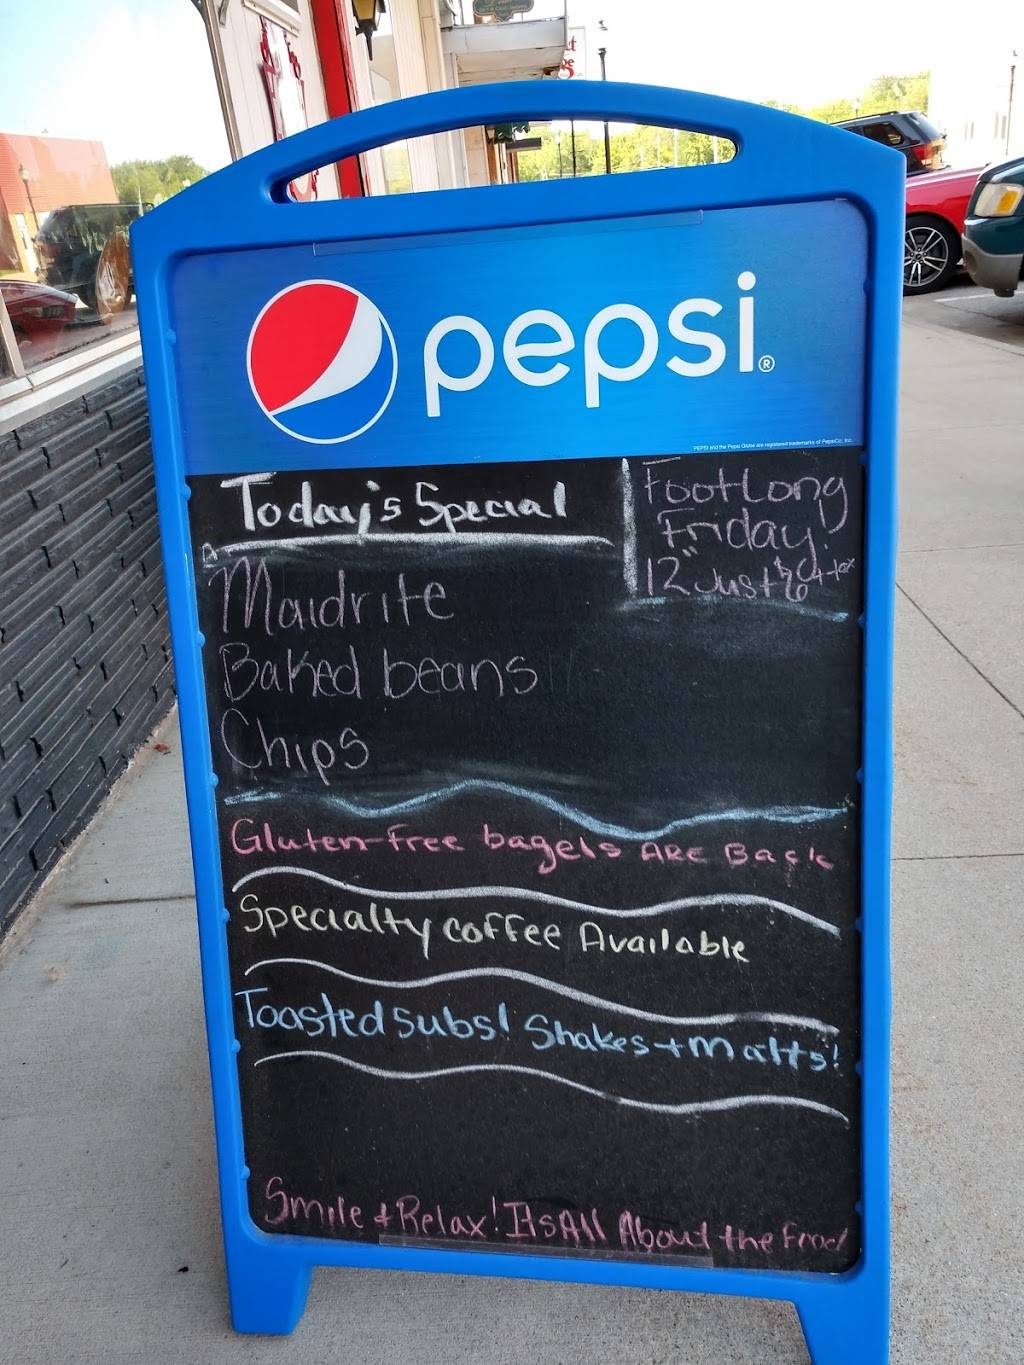 pepsi®
PEPSI and the Pepsi Globe are registered trademarks of PepsiCo, Inc.
Today's Special
FootLong
Friday!
12" Just $6 + tax
Maidrite
Baked beans
Chips
Gluten-free bagels ARE Back
Specialty coffee Available
Toasted subs! Shakes + malts!
Smile & Relax! Its All About the Food